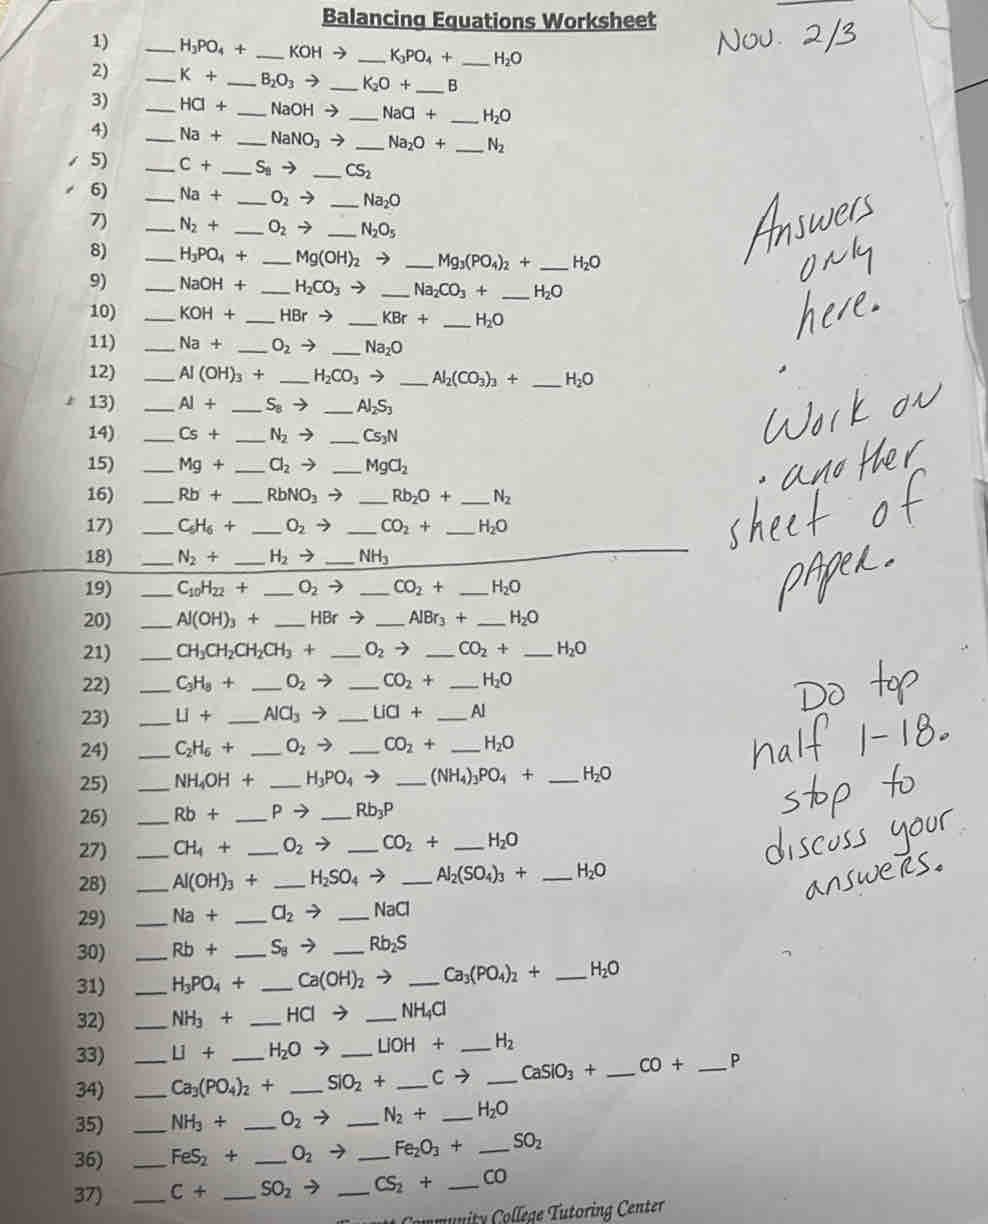 Balancing Equations Worksheet
Nov. 2/3
1) ___ H₃PO₄ + ___ KOH → ___ K₃PO₄ + ___ H₂O
2) ___ K + ___ B₂O₃ → ___ K₂O + ___ B
3) ___ HCl + ___ NaOH → ___ NaCl + ___ H₂O
4) ___ Na + ___ NaNO₃ → ___ Na₂O + ___ N₂
5) ___ C + ___ S₈ → ___ CS₂
6) ___ Na + ___ O₂ → ___ Na₂O
7) ___ N₂ + ___ O₂ → ___ N₂O₅
8) ___ H₃PO₄ + ___ Mg(OH)₂ → ___ Mg₃(PO₄)₂ + ___ H₂O
9) ___ NaOH + ___ H₂CO₃ → ___ Na₂CO₃ + ___ H₂O
10) ___ KOH + ___ HBr → ___ KBr + ___ H₂O
11) ___ Na + ___ O₂ → ___ Na₂O
12) ___ Al (OH)₃ + ___ H₂CO₃ → ___ Al₂(CO₃)₃ + ___ H₂O
13) ___ Al + ___ S₈ → ___ Al₂S₃
14) ___ Cs + ___ N₂ → ___ Cs₃N
15) ___ Mg + ___ Cl₂ → ___ MgCl₂
16) ___ Rb + ___ RbNO₃ → ___ Rb₂O + ___ N₂
17) ___ C₆H₆ + ___ O₂ → ___ CO₂ + ___ H₂O
18) ___ N₂ + ___ H₂ → ___ NH₃
19) ___ C₁₀H₂₂ + ___ O₂ → ___ CO₂ + ___ H₂O
20) ___ Al(OH)₃ + ___ HBr → ___ AlBr₃ + ___ H₂O
21) ___ CH₃CH₂CH₂CH₃ + ___ O₂ → ___ CO₂ + ___ H₂O
22) ___ C₃H₈ + ___ O₂ → ___ CO₂ + ___ H₂O
23) ___ Li + ___ AlCl₃ → ___ LiCl + ___ Al
24) ___ C₂H₆ + ___ O₂ → ___ CO₂ + ___ H₂O
25) ___ NH₄OH + ___ H₃PO₄ → ___ (NH₄)₃PO₄ + ___ H₂O
26) ___ Rb + ___ P → ___ Rb₃P
27) ___ CH₄ + ___ O₂ → ___ CO₂ + ___ H₂O
28) ___ Al(OH)₃ + ___ H₂SO₄ → ___ Al₂(SO₄)₃ + ___ H₂O
29) ___ Na + ___ Cl₂ → ___ NaCl
30) ___ Rb + ___ S₈ → ___ Rb₂S
31) ___ H₃PO₄ + ___ Ca(OH)₂ → ___ Ca₃(PO₄)₂ + ___ H₂O
32) ___ NH₃ + ___ HCl → ___ NH₄Cl
33) ___ Li + ___ H₂O → ___ LiOH + ___ H₂
34) ___ Ca₃(PO₄)₂ + ___ SiO₂ + ___ C → ___ CaSiO₃ + ___ CO + ___ P
35) ___ NH₃ + ___ O₂ → ___ N₂ + ___ H₂O
36) ___ FeS₂ + ___ O₂ → ___ Fe₂O₃ + ___ SO₂
37) ___ C + ___ SO₂ → ___ CS₂ + ___ CO
Answers
only
here.
Work on
another
sheet of
paper.
Do top
half 1-18.
stop to
discuss your
answers.
College Tutoring Center